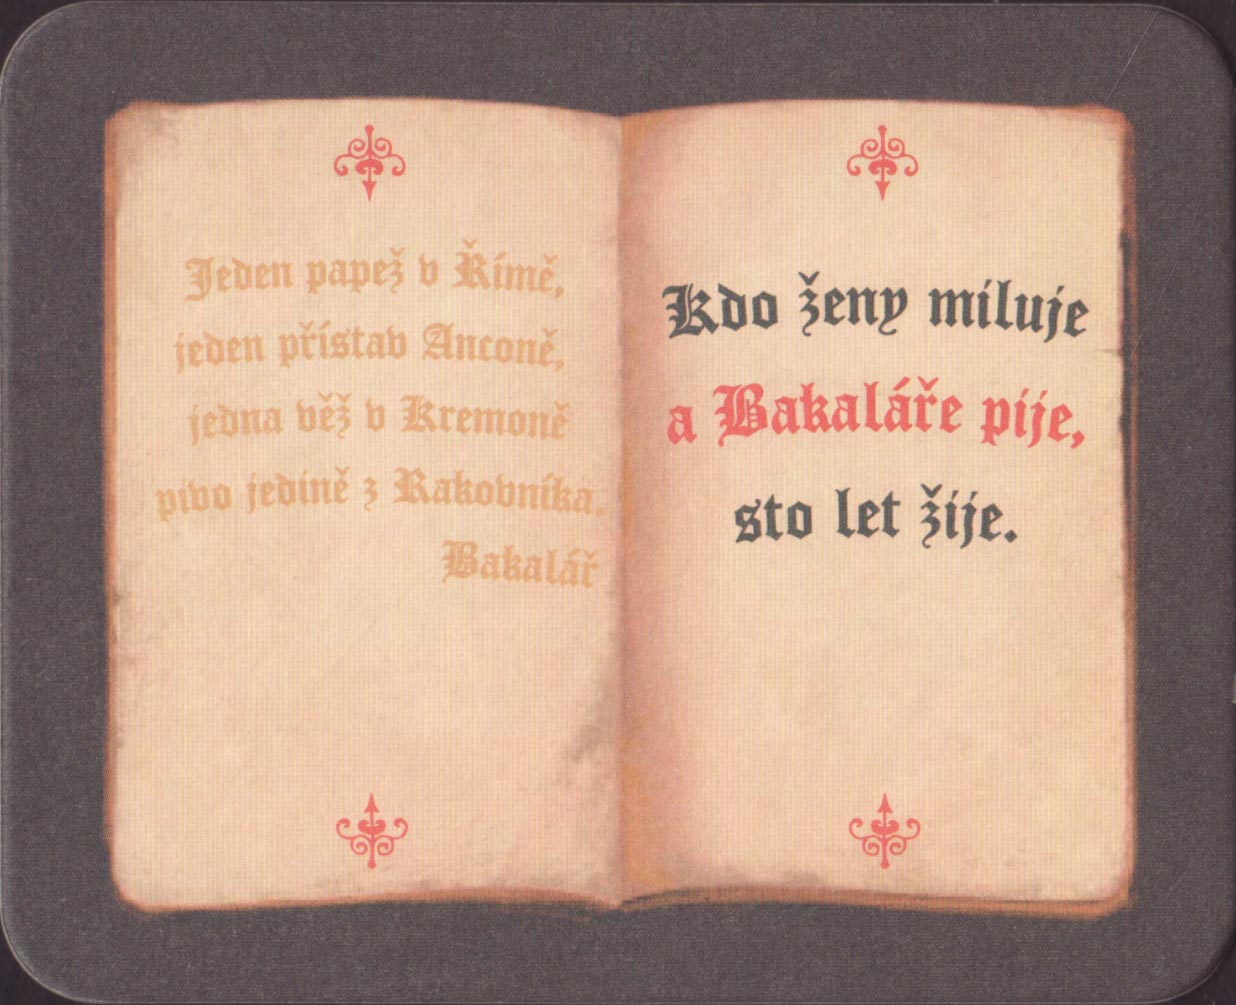 Jeden papež v Římě,
jeden přístav Anconě,
jedna věž v Kremoně
pivo jedině z Rakovníka.
Bakalář
Kdo ženy miluje
a Bakaláře pije,
sto let žije.